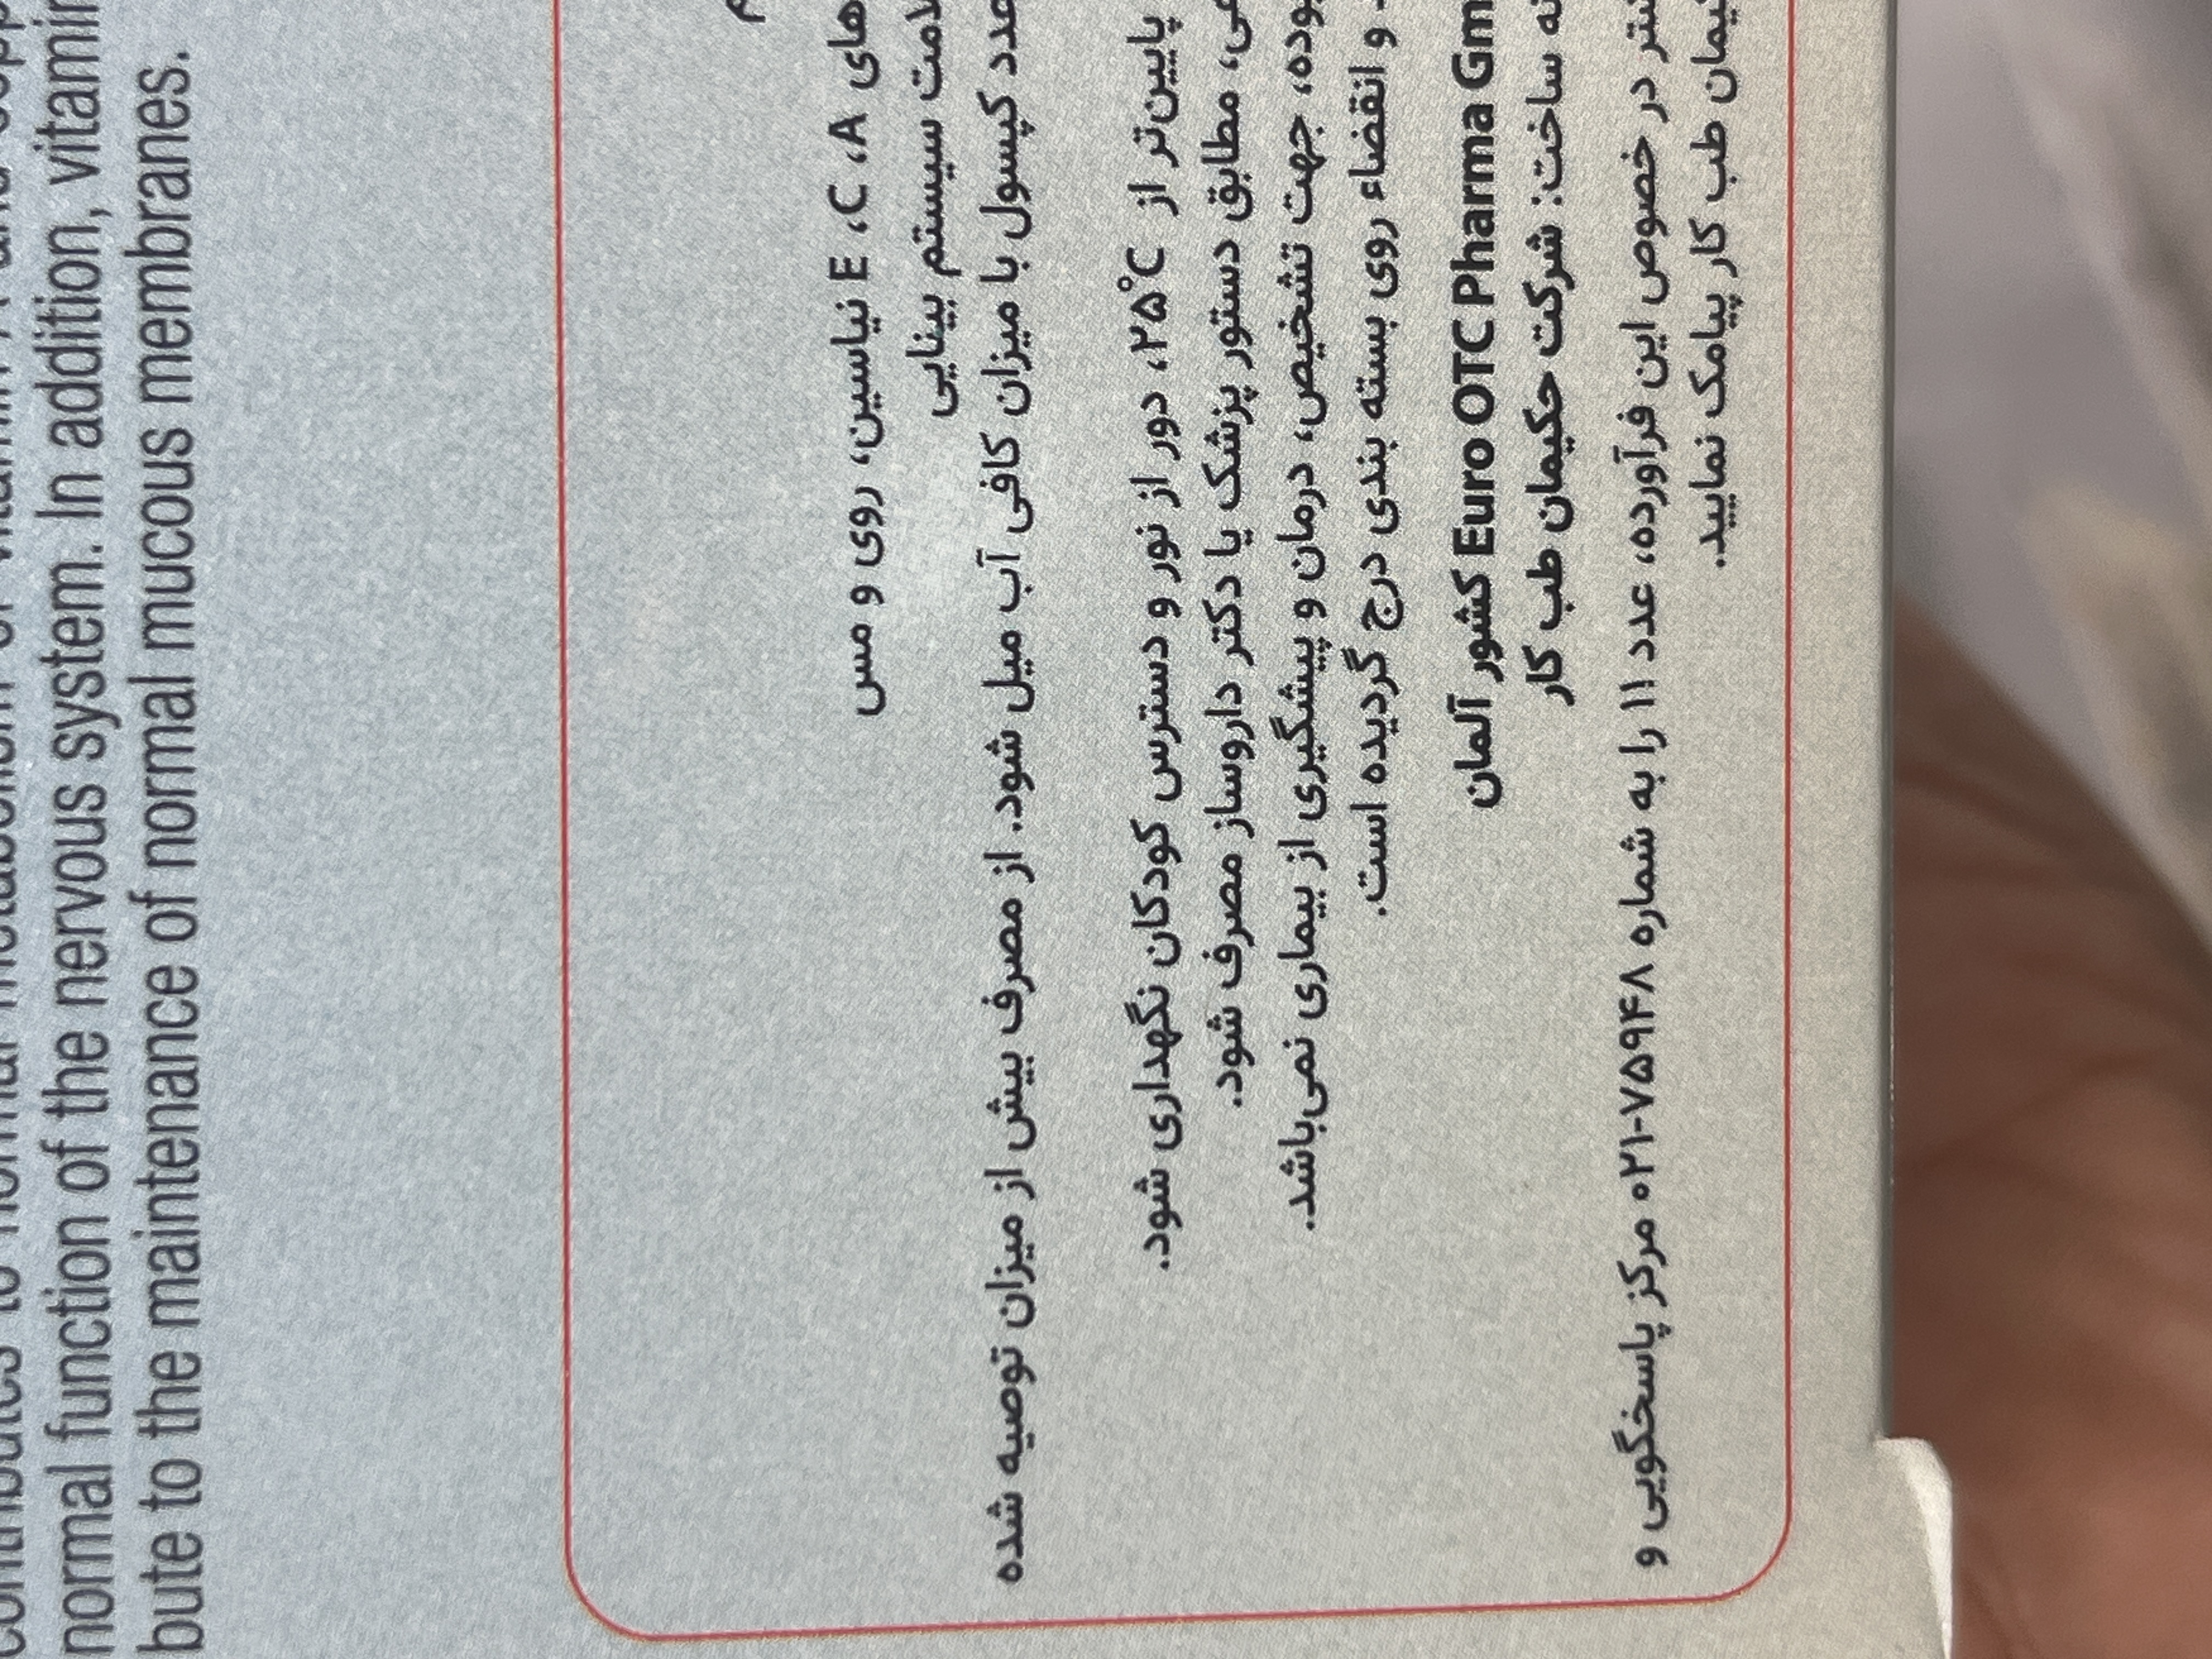 normal function of the nervous system. In addition, vitamin
bute to the maintenance of normal mucous membranes.
های A، C، E نیاسین، روی و مس
سیستم بینایی
عدد کپسول با میزان کافی آب میل شود. از مصرف بیش از میزان توصیه شده
پایین‌تر از ۲۵°C، دور از نور و دسترس کودکان نگهداری شود.
مطابق دستور پزشک یا دکتر داروساز مصرف شود.
جهت تشخیص، درمان و پیشگیری از بیماری نمی‌باشد.
و انقضاء روی بسته بندی درج گردیده است.
Euro OTC Pharma Gm کشور آلمان
ساخت: شرکت حکیمان طب کار
در خصوص این فرآورده، عدد ۱۱ را به شماره ۷۵۹۴۸-۰۲۱ مرکز پاسخگویی و
طب کار پیامک نمایید.